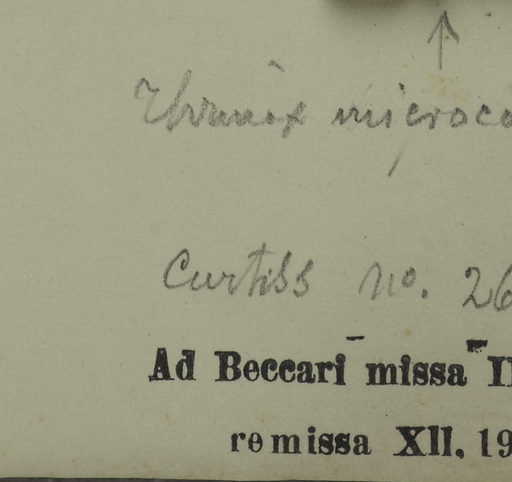 Thrinax microca
Curtiss No. 26
Ad Beccari missa II
remissa XII. 19